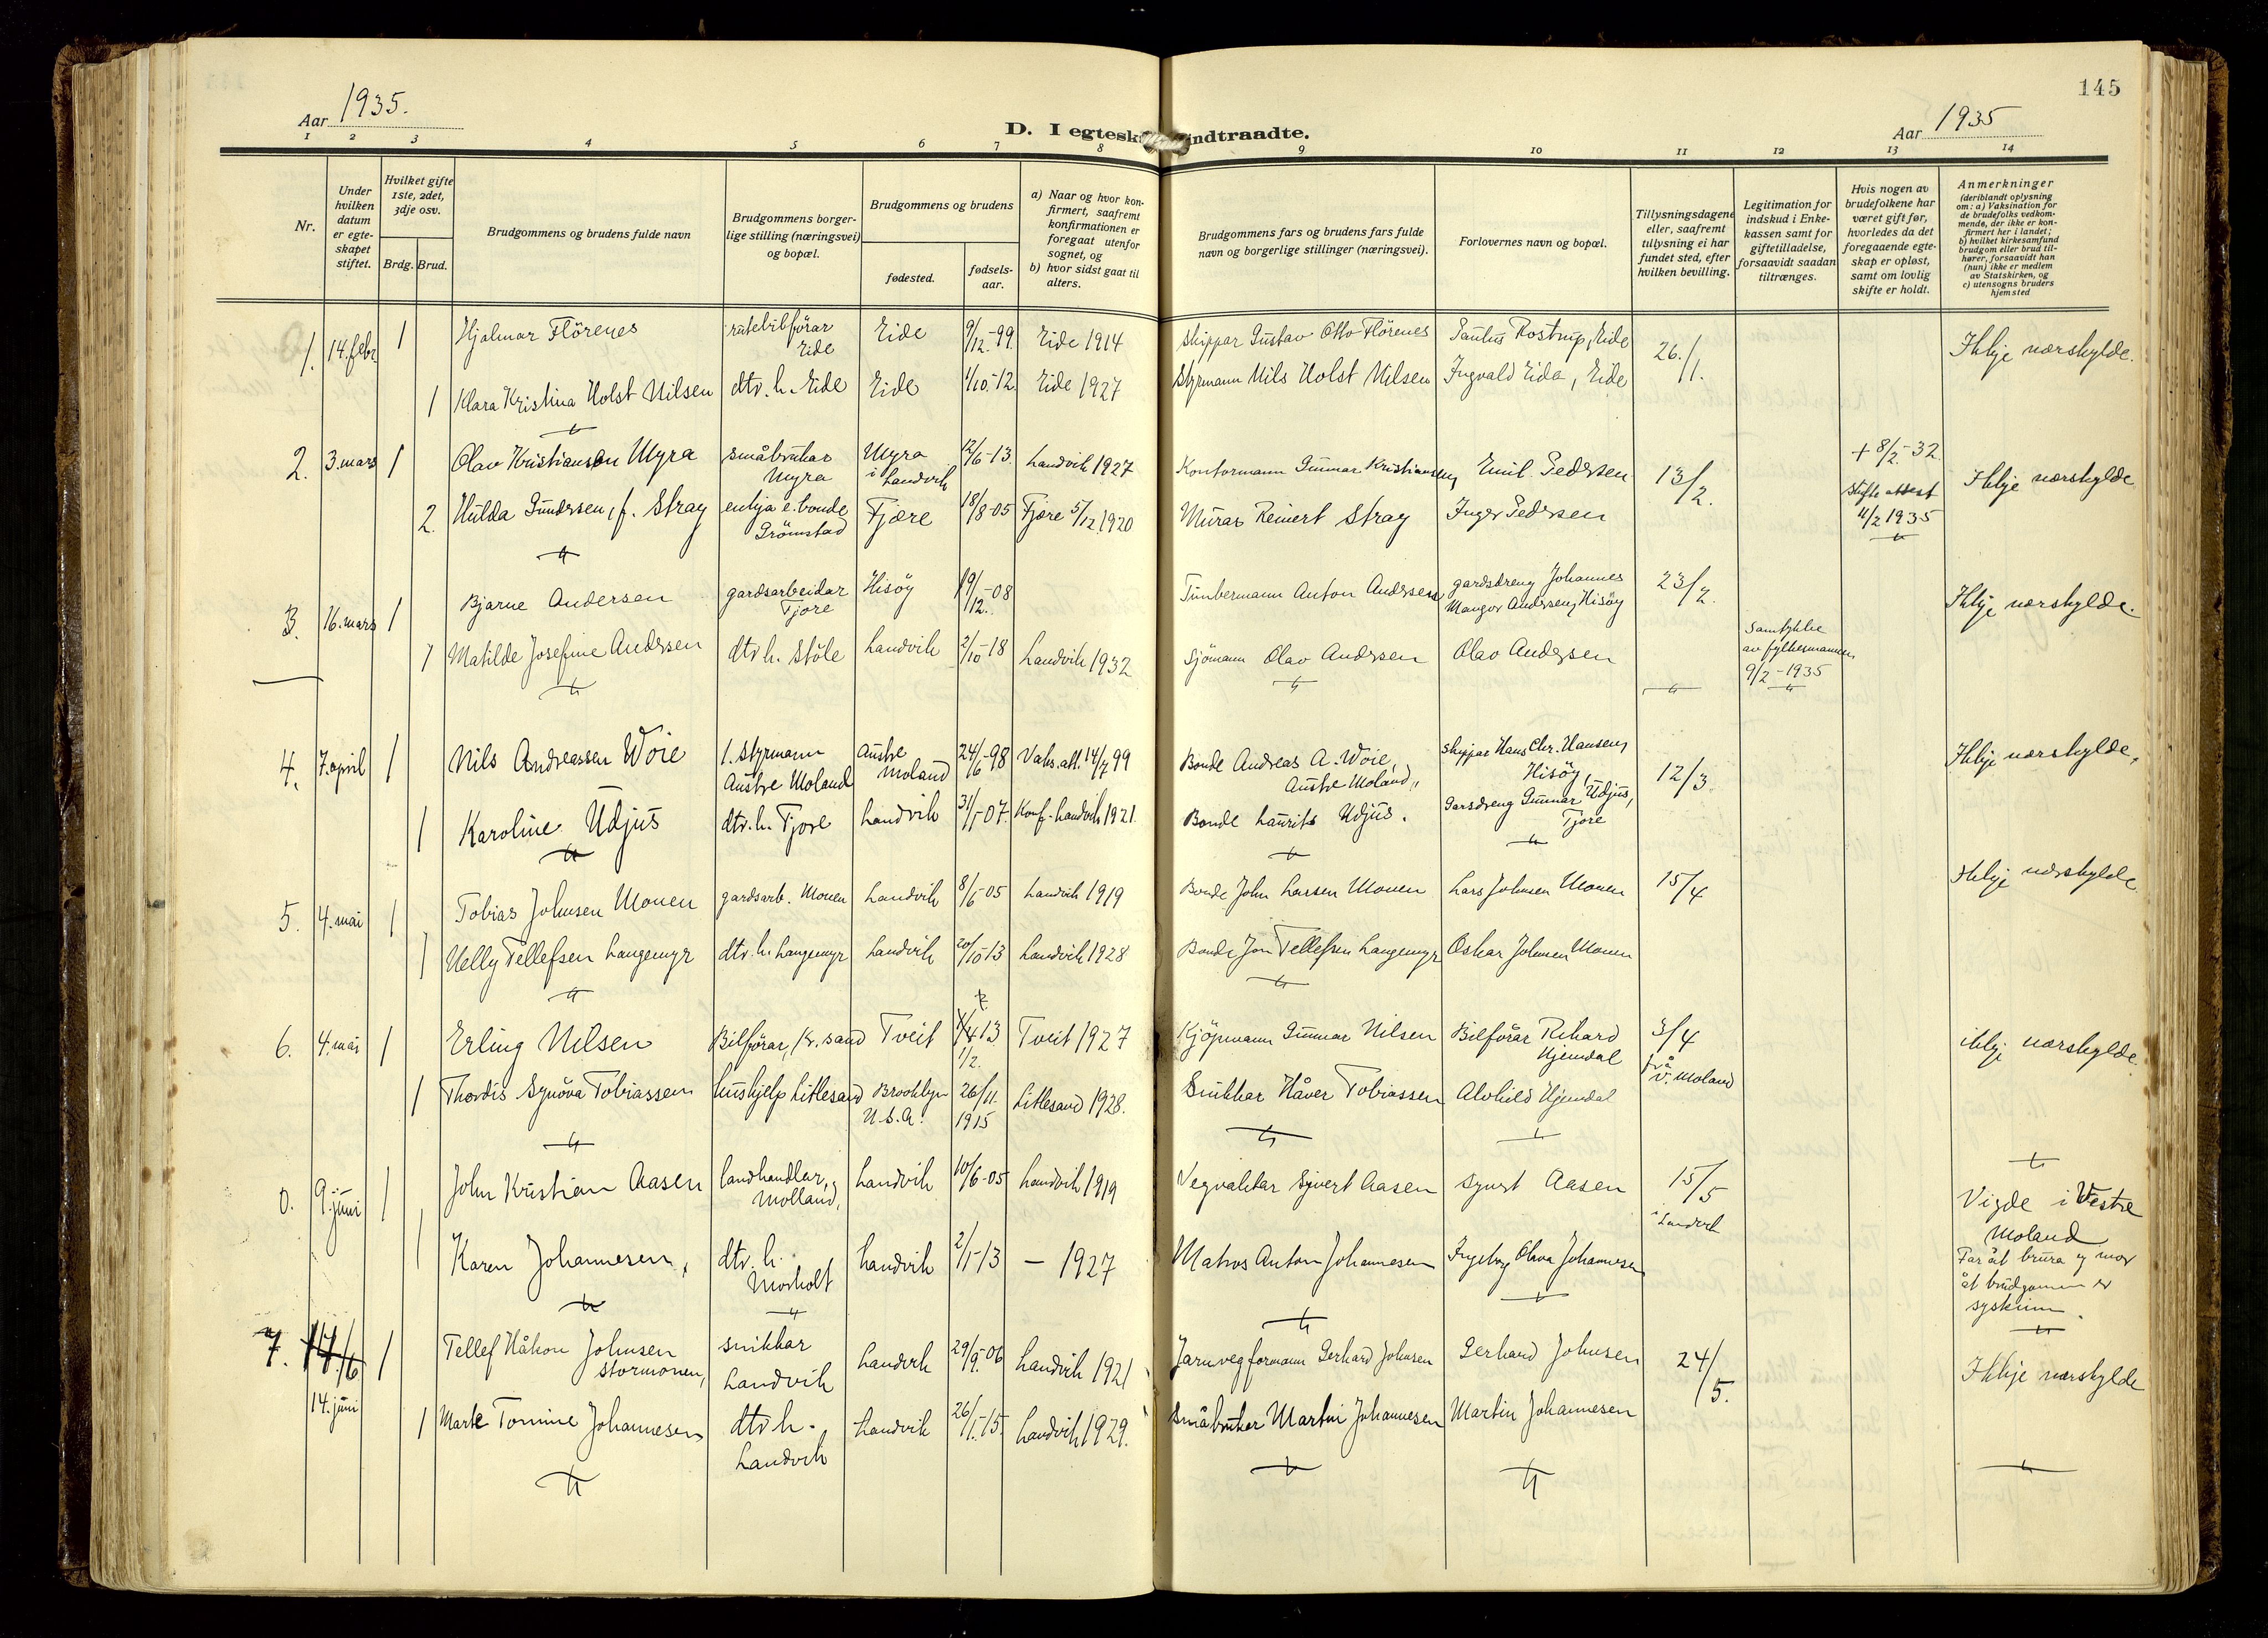 145
Aar 1935.
D. I egteskap indtraadte.
Aar 1935
1 2 3 4 5 6 7 8 9 10 11 12 13 14
Nr.
Under hvilken datum er egteskapet stiftet.
Hvilket gifte 1ste, 2det, 3dje osv.
Brdg. Brud.
Brudgommens og brudens fulde navn
Brudgommens borgerlige stilling (næringsvei) og bopæl.
Brudgommens og brudens
fødested.
fødselsaar.
a) Naar og hvor konfirmert, saafremt konfirmationen er foregaat utenfor sognet, og
b) hvor sidst gaat til alters.
Brudgommens fars og brudens fars fulde navn og borgerlige stillinger (næringsvei).
Forlovernes navn og bopæl.
Tillysningsdagene eller, saafremt tillysning ei har fundet sted, efter hvilken bevilling.
Legitimation for indskud i Enkekassen samt for giftetilladelse, forsaavidt saadan tiltrænges.
Hvis nogen av brudefolkene har været gift før, hvorledes da det foregaaende egteskap er opløst, samt om lovlig skifte er holdt.
Anmerkninger (deriblandt oplysning om: a) Vaksination for de brudefolks vedkommende, der ikke er konfirmert her i landet; b) hvilket kirkesamfund brudgom eller brud tilhører, forsaavidt han (hun) ikke er medlem av Statskirken, og c) utensogns bruders hjemsted
1. 14. febr. 1 Hjalmar Flörenes rutebilförar Eide Eide 9/12-99. Eide 1914 Skippar Gustav Otto Flörenes Santus Rostrup, Eide 26./1. Ikkje nærskylde.
1 Klara Kristina Holst Nilsen dtr. h. Eide Eide 4/10-12. Eide 1927 Styrmann Nils Holst Nilsen Ingvald Eide, Eide
2. 3. mars 1 Olav Kristiansen Myra småbrukar Myra Myra i Landvik 12/6-13. Landvik 1927 Kontormann Gunnar Kristiansen, Emil Pedersen 13/2. + 8/2-32. Ikkje nærskylde
2. Hulda Gundersen, f. Stray enkja e. bonde Grömstad Fjære 18/8-05 Fjære 5/12 1920 Murar Reinert Stray Inger Pedersen Skifte attest 11/2 1935
3. 16. mars 1 Bjarne Andersen gardsarbeidar Fjore Hisöy 19/12-08 Timbermann Anton Andersen gardsdreng Johannes Mangor Andersen, Hisöy 23/2. Ikkje nærskylde.
1 Matilde Josefine Andersen dtr h. Støle Landvik 2/10-18 Landvik 1932 Sjömann Olav Andersen Olav Andersen Samtykke av fylkesmannen 9/2-1935
4. 7. april 1 Nils Andreassen Woie 1. Styrmann Austre Moland Austre Moland 24/6-98 Vaks. att. 14/7 99 Bonde Andreas A. Woie, Austre Moland, Skippar Hans Chr. Hansen, Hisöy, 12/3. Ikkje nærskylde.
1 Karoline Udjus dtr. h. Fjore Landvik 31/1-07. Konf. Landvik 1921. Bonde Laurits Udjus. Garsdreng Gunnar Udjus, Fjore
5. 4. mai 1 Tobias Johnsen Monen gardsarb. Monen Landvik 8/6-05 Landvik 1919 Bonde John Larsen Monen Lars Johnsen Monen 15/4 Ikkje nærskylde.
1 Nelly Tellefsen Langemyr dtr. h. Langemyr Landvik 20/10-13 Landvik 1928 Bonde Jon Tellefsen Langemyr Oskar Johnsen Monen
6. 4. mai 1 Erling Nilsen Bilförar, Kr. sand Tveit 1/4 13. 1/2. Tveit 1927 Kjöpmann Gunnar Nilsen Bilförar Rikard Hjemdal 3/4 frå V. Moland ikkje nærskylde.
1 Thordis Synöva Tobiassen hushjelp Lillesand Brooklyn U.S.A. 26/11. 1915 Lillesand 1928. Snikkar Håver Tobiassen Alvhild Hjemdal
0. 9. juni 1 John Kristian Aasen landhandlar, Molland, Landvik 10/6-05 Landvik 1919 Vegvaktar Syvert Aasen Syvert Aasen 15/5 i Landvik Vigde i Vestre Moland
1 Karen Johannesen, dtr. h. Morholt Landvik 2/1-13 — 1927 Matros Anton Johannesen Ingeborg Olava Johannesen Far åt brura og mor åt brudgomen er syskinn.
7. 14/6 1 Tellef Håkon Johnsen Stormonen, snikkar Landvik Landvik 29/9-06 Landvik 1921 Jarnvegformann Gerhard Johnsen Gerhard Johnsen 24/5. Ikkje nærskylde
14. juni 1 Marte Tomine Johannesen dtr h. Landvik Landvik 26/1-15. Landvik 1929. Småbruker Martin Johannesen Martin Johannesen